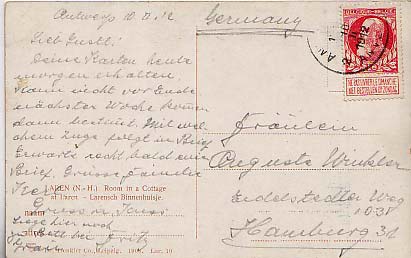 Antwerp 10. II. 12
Germany
Lieb Gustl!
Deine Karten heute
morgen erhalten.
Kann nicht vor Ende
nächster Woche kommen
dann bestimmt. Mit wel-
chem Zuge folgt in Brief.
Erwarte recht bald einen
Brief. Grüsse Familie
Gruss u. Kuss
Liege hier noch
zu Bett bei
Fritz
LAREN (N.-H.) Room in a Cottage
at Laren. – Larensch Binnenhuisje.
naam
1912
NE PAS LIVRER LE DIMANCHE
NIET BESTELLEN OP ZONDAG
Fräulein
Auguste Winkler
Eidelstedter Weg
Hamburg 31